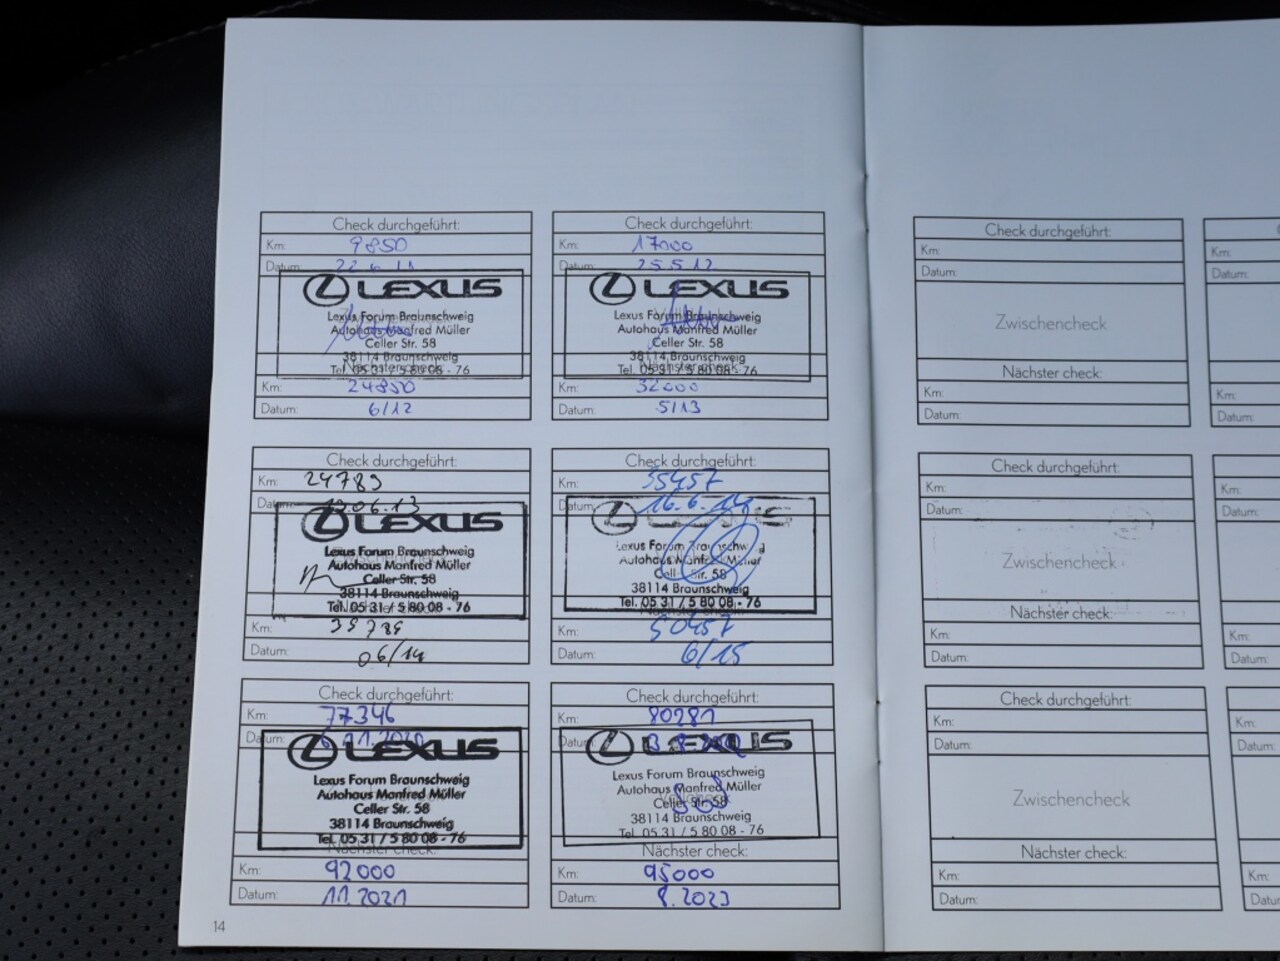 Check durchgeführt:
Km: 9850
Datum: 22.6.11
LEXUS
Lexus Forum Braunschweig
Autohaus Manfred Müller
Celler Str. 58
38114 Braunschweig
Tel. 05 31 / 5 80 08 - 76
Nächster check:
Km: 24850
Datum: 6/12
Check durchgeführt:
Km: 17000
Datum: 25.5.12
LEXUS
Lexus Forum Braunschweig
Autohaus Manfred Müller
Celler Str. 58
38114 Braunschweig
Tel. 05 31 / 5 80 08 - 76
Km: 32000
Datum: 5/13
Check durchgeführt:
Km: 24789
Datum: .06.13
LEXUS
Lexus Forum Braunschweig
Autohaus Manfred Müller
Celler Str. 58
38114 Braunschweig
Tel. 05 31 / 5 80 08 - 76
Km: 39789
Datum: 06/14
Check durchgeführt:
Km: 35457
Datum: 16.6.14
LEXUS
Lexus Forum Braunschweig
Autohaus Manfred Müller
Celler Str. 58
38114 Braunschweig
Tel. 05 31 / 5 80 08 - 76
Nächster check:
Km: 50457
Datum: 6/15
Check durchgeführt:
Km: 77346
Datum: 6.11.2020
LEXUS
Lexus Forum Braunschweig
Autohaus Manfred Müller
Celler Str. 58
38114 Braunschweig
Tel. 05 31 / 5 80 08 - 76
Nächster check:
Km: 92000
Datum: 11.2021
Check durchgeführt:
Km: 80281
Datum:
LEXUS
Lexus Forum Braunschweig
Autohaus Manfred Müller
Celler Str. 58
38114 Braunschweig
Tel. 05 31 / 5 80 08 - 76
Nächster check:
Km: 95000
Datum: 8.2023
14
Check durchgeführt:
Km:
Datum:
Zwischencheck
Nächster check:
Km:
Datum:
Km:
Datum:
Km:
Datum:
Check durchgeführt:
Km:
Datum:
Zwischencheck
Nächster check:
Km:
Datum:
Km:
Datum:
Km:
Datum:
Check durchgeführt:
Km:
Datum:
Zwischencheck
Nächster check:
Km:
Datum:
Km:
Km: